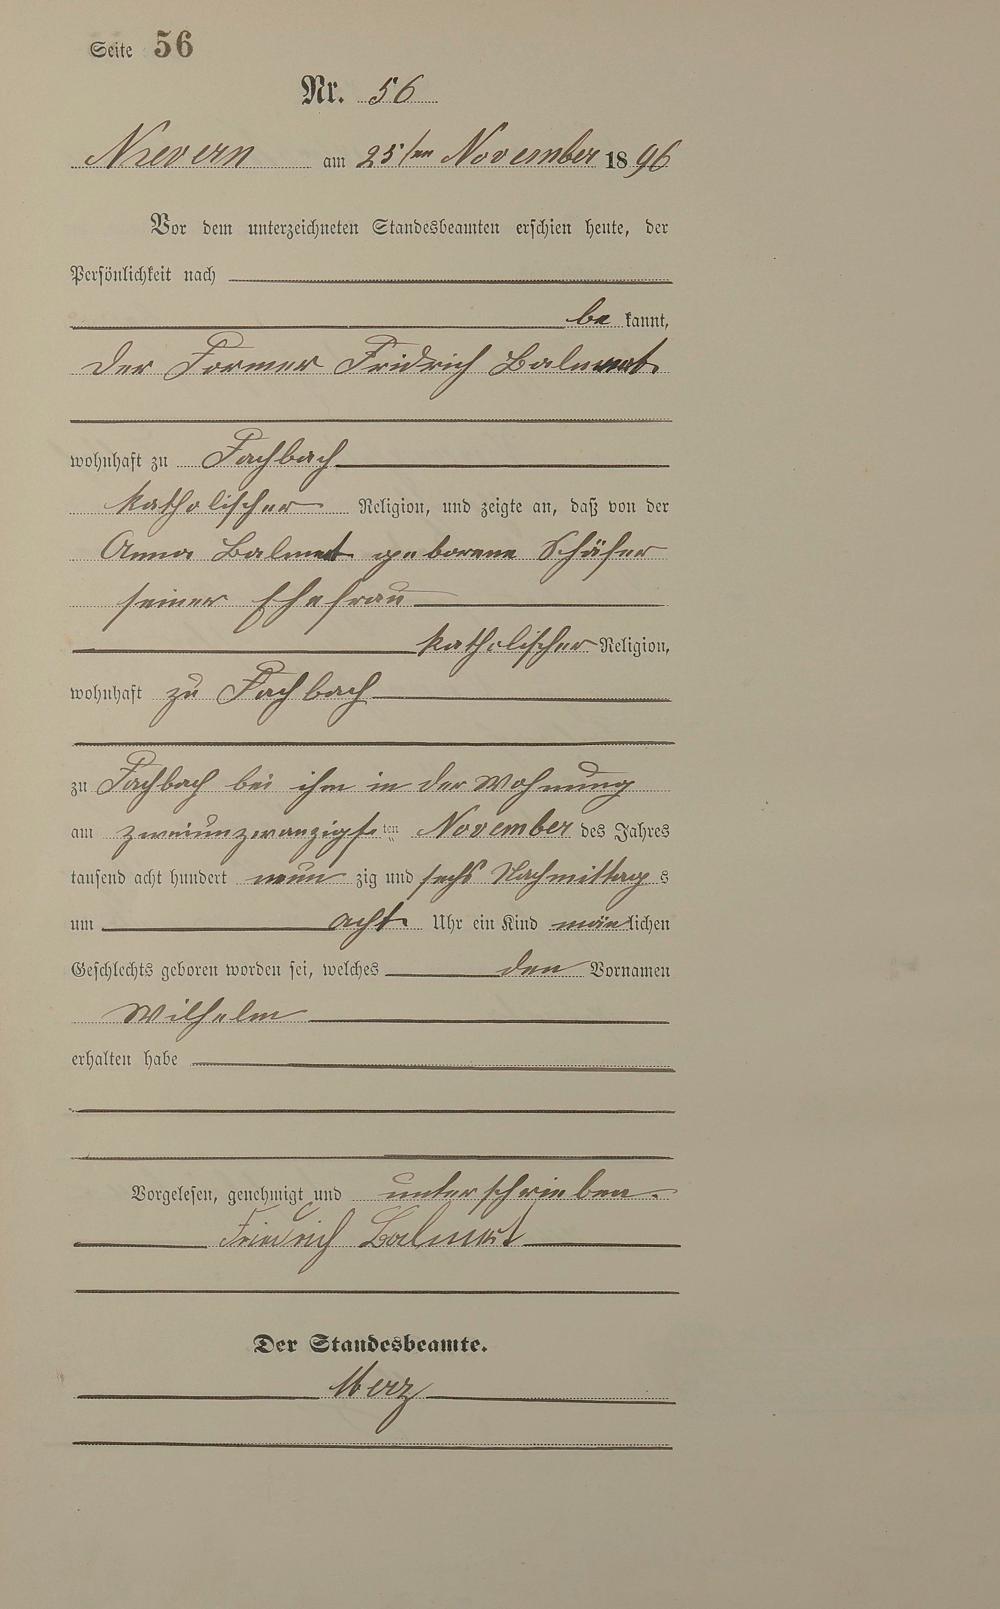 Seite 56
Nr. 56
Nievern am 25ten November 1896
Vor dem unterzeichneten Standesbeamten erschien heute, der
Persönlichkeit nach
be kannt,
der Former Fridrich Balmert
wohnhaft zu Fachbach
katholischer Religion, und zeigte an, daß von der
Anna Balmert geborene Schäfer
seiner Ehefrau
katholischer Religion,
wohnhaft zu Fachbach
zu Fachbach bei ihm in der Wohnung
am zweiunzwanzigst ten November des Jahres
tausend acht hundert neun zig und sechs Nachmittag s
um acht Uhr ein Kind mänlichen
Geschlechts geboren worden sei, welches den Vornamen
Wilhelm
erhalten habe
Vorgelesen, genehmigt und unterschrieben.
Friedrich Balmert
Der Standesbeamte.
Merz